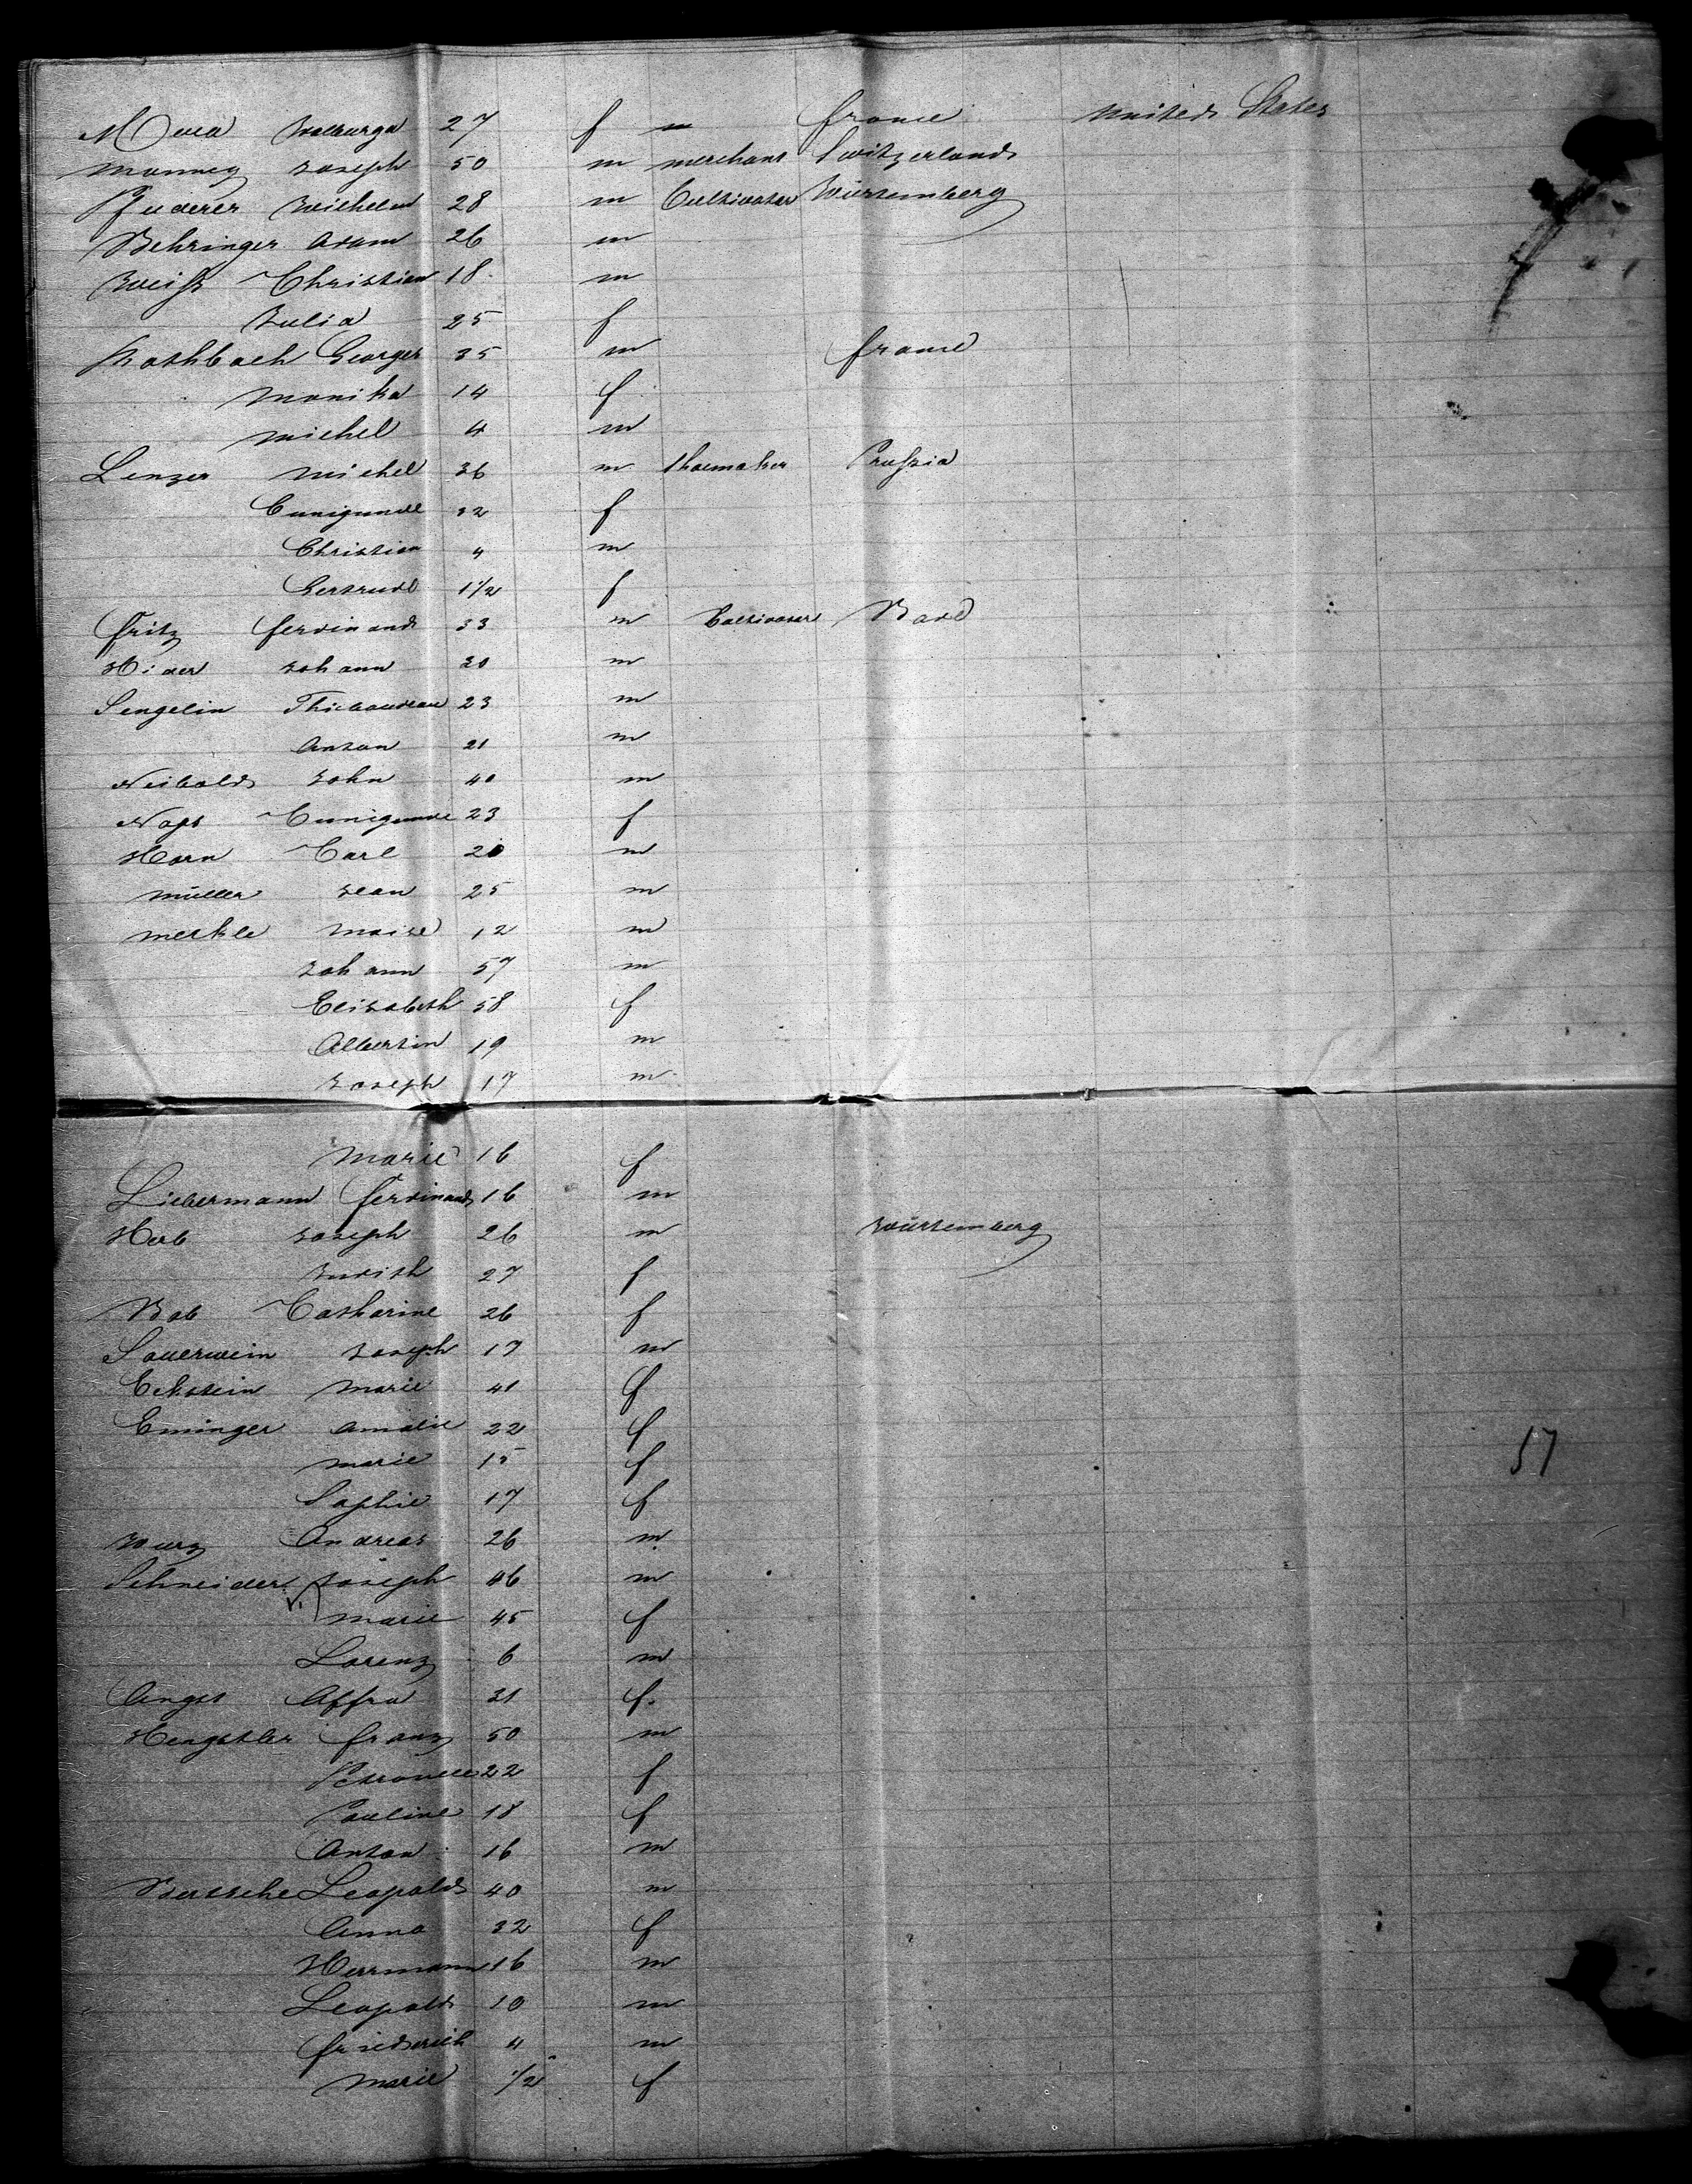 Walburga 27 f France United States
Joseph 50 m merchant Switzerland
Pfuderer Wilhelm 28 m Cultivator Würtemberg
Behringer Adam 26 m
Weiß Christian 18 m
Julia 25 f
Rothbach Georges 35 m France
Monika 14 f
Michel 4 m
Lenzer Michel 36 m Shoemaker Prußia
Cunigunde 32 f
Christian 4 m
Gertrude 1 1/2 f
Fritz Ferdinand 33 m Cultivator Bade
Hider Johann 30 m
Sengelin Thiebaudeau 23 m
Anton 21 m
Neibold John 40 m
Cunigunde 23 f
Horn Carl 20 m
Müller Jean 25 m
Merkle Moise 12 m
Johann 57 m
Elisabeth 58 f
Albertin 19 m
Joseph 17 m
Marie 16 f
Liebermann Ferdinand 16 m
Herb Joseph 26 m Würtemberg
Judith 27 f
Bob Catharine 26 f
Sauerwein Joseph 17 m
Eckstein Marie 41 f
Eminger Amalie 22 f
Marie 15 f
Sophie 17 f
57
Wurz Andreas 26 m
Schneider Joseph 46 m
Marie 45 f
Lorenz 6 m
Angst Affra 31 f.
Hengstler Franz 50 m
Petronelle 22 f
Pauline 18 f
Anton 16 m
Bertsche Leopold 40 m
Anna 32 f
Herrmann 16 m
Leopold 10 m
Friederich 4 m
Marie 1/2 f